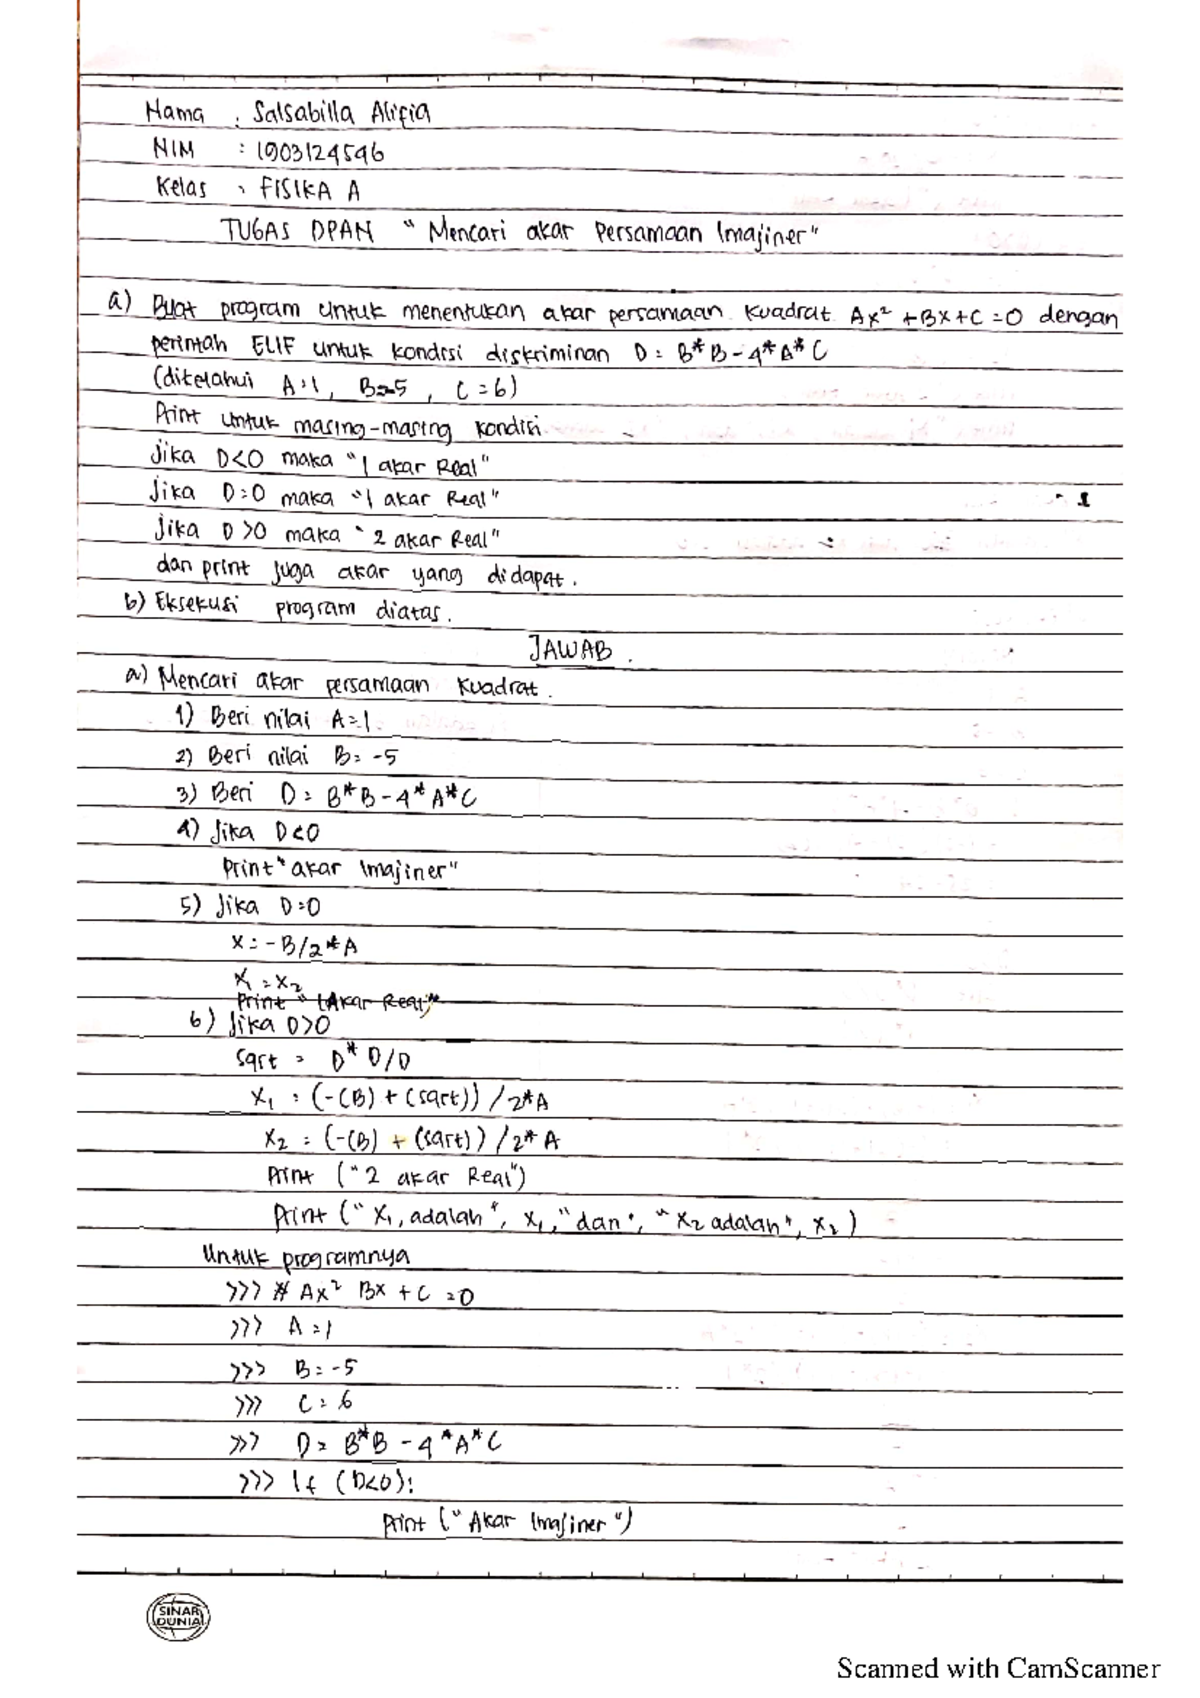 Nama : Salsabilla Alifia
NIM : 1903124546
Kelas : FISIKA A
TUGAS DPAN "Mencari akar Persamaan Imajiner"
a) Buat program untuk menentukan akar persamaan kuadrat Ax² + Bx + C = 0 dengan
perintah ELIF untuk kondisi diskriminan D = B*B - 4*A*C
(diketahui A=1, B=-5, C=6)
Print untuk masing-masing kondisi.
Jika D<0 maka "1 akar Real"
Jika D=0 maka "1 akar Real"
Jika D>0 maka "2 akar Real"
dan print juga akar yang didapat.
b) Eksekusi program diatas.
JAWAB.
a) Mencari akar persamaan kuadrat.
1) Beri nilai A=1.
2) Beri nilai B= -5
3) Beri D = B*B - 4*A*C
4) Jika D<0
Print "akar Imajiner"
5) Jika D=0
x = -B/2*A
x₁ = x₂
Print "1 Akar Real"
6) Jika D>0
Sqrt = D*D/D
x₁ = (-(B) + (sqrt)) / 2*A
x₂ = (-(B) + (sqrt)) / 2*A
Print ("2 akar Real")
Print ("x₁, adalah", x₁, "dan", "x₂ adalah", x₂)
Untuk programnya
>>> # Ax² Bx + C = 0
>>> A = 1
>>> B = -5
>>> C = 6
>>> D = B*B - 4*A*C
>>> If (D<0):
Print ("Akar Imajiner")
SINAR
DUNIA
Scanned with CamScanner